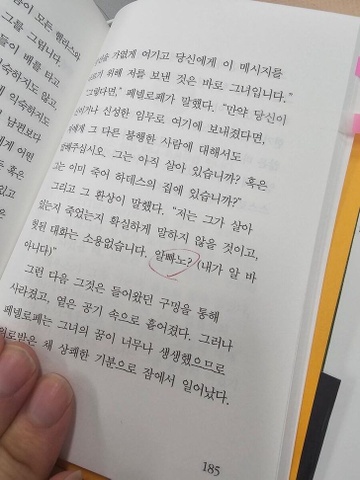 들이 모든 헬라스의
그를 그립니다.
들이 배를 타고
익숙하지도 않고,
에 익숙하지도
남편보다
에게 어떤
혹은
있고
가엾게 여기고 당신에게 이 메시지를
위해 저를 보낸 것은 바로 그녀입니다."
그렇다면," 페넬로페가 말했다. "만약 당신이
신이거나 신성한 임무로 여기에 보내졌다면,
에게 그 다른 불행한 사람에 대해서도
해주십시오. 그는 아직 살아 있습니까? 혹은
그는 이미 죽어 하데스의 집에 있습니까?"
그리고 그 환상이 말했다. "저는 그가 살아
있는지 죽었는지 확실하게 말하지 않을 것이고,
헛된 대화는 소용없습니다. 알빠노? (내가 알 바
아니다)"
그런 다음 그것은 들어왔던 구멍을 통해
사라졌고, 옅은 공기 속으로 흩어졌다. 그러나
페넬로페는 그녀의 꿈이 너무나 생생했으므로
위로받은 채 상쾌한 기분으로 잠에서 일어났다.
185